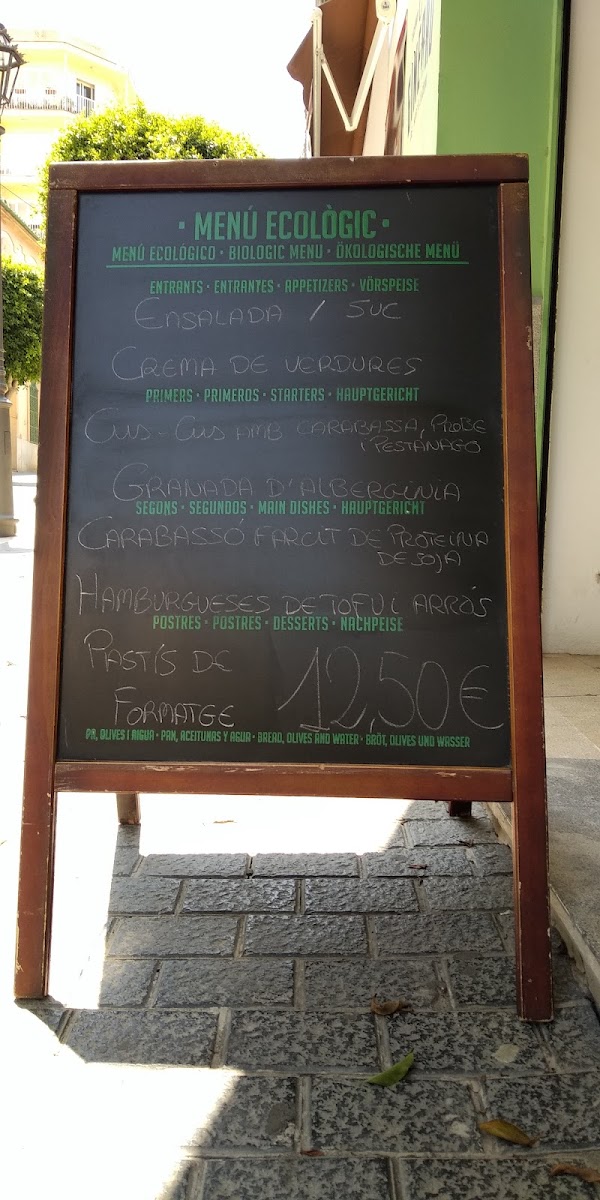 · MENÚ ECOLÒGIC ·
MENÚ ECOLÓGICO · BIOLOGIC MENU · ÖKOLOGISCHE MENÜ
ENTRANTS · ENTRANTES · APPETIZERS · VÖRSPEISE
ENSALADA / SUC
CREMA DE VERDURES
PRIMERS · PRIMEROS · STARTERS · HAUPTGERICHT
CUS-CUS AMB CARABASSA, PROBE
I PESTANAGO
GRANADA D'ALBERGINIA
SEGONS · SEGUNDOS · MAIN DISHES · HAUPTGERICHT
CARABASSÓ FARCIT DE PROTEINA
DE SOJA
HAMBURGUESES DE TOFU I ARRÒS
POSTRES · POSTRES · DESSERTS · NACHPEISE
PASTÍS DE
FORMATGE 12,50€
PA, OLIVES I AIGUA · PAN, ACEITUNAS Y AGUA · BREAD, OLIVES AND WATER · BRÖT, OLIVES UND WASSER